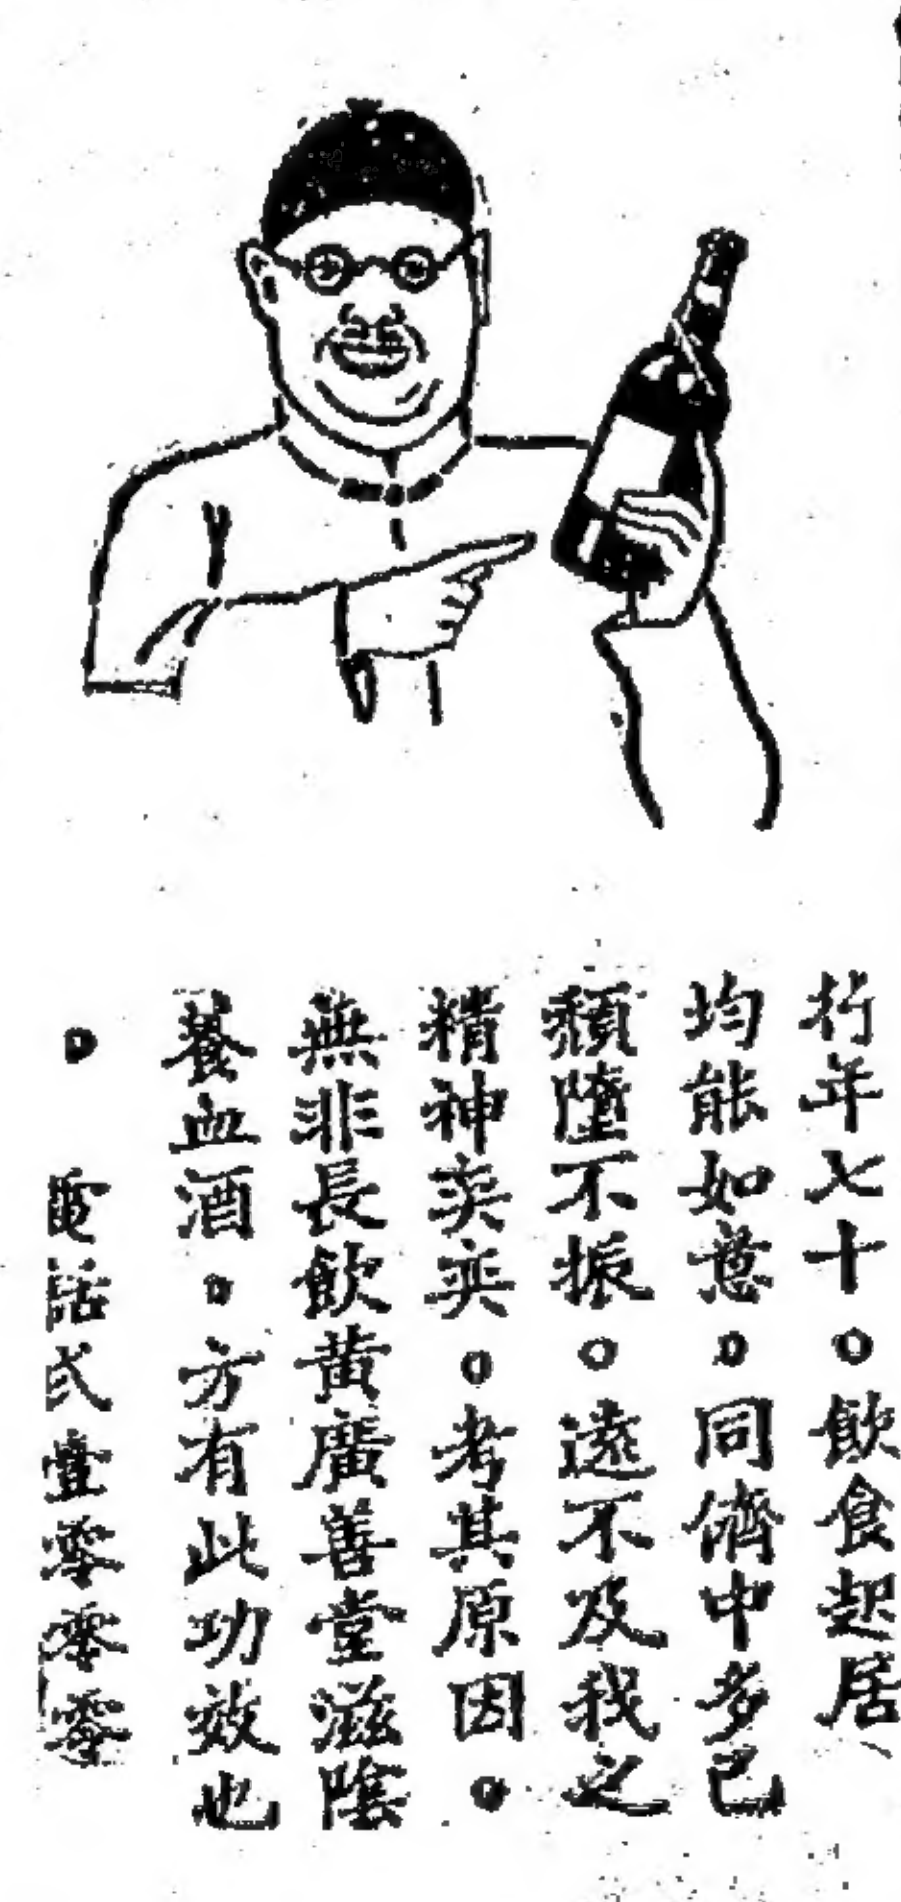 行年七十。飲食起居
均能如意。同儕中多已
頹墮不振。遠不及我之
精神奕奕。考其原因。
無非長飲黄廣善堂滋陰
養血酒。方有此功效也
。 電話弍壹零零零